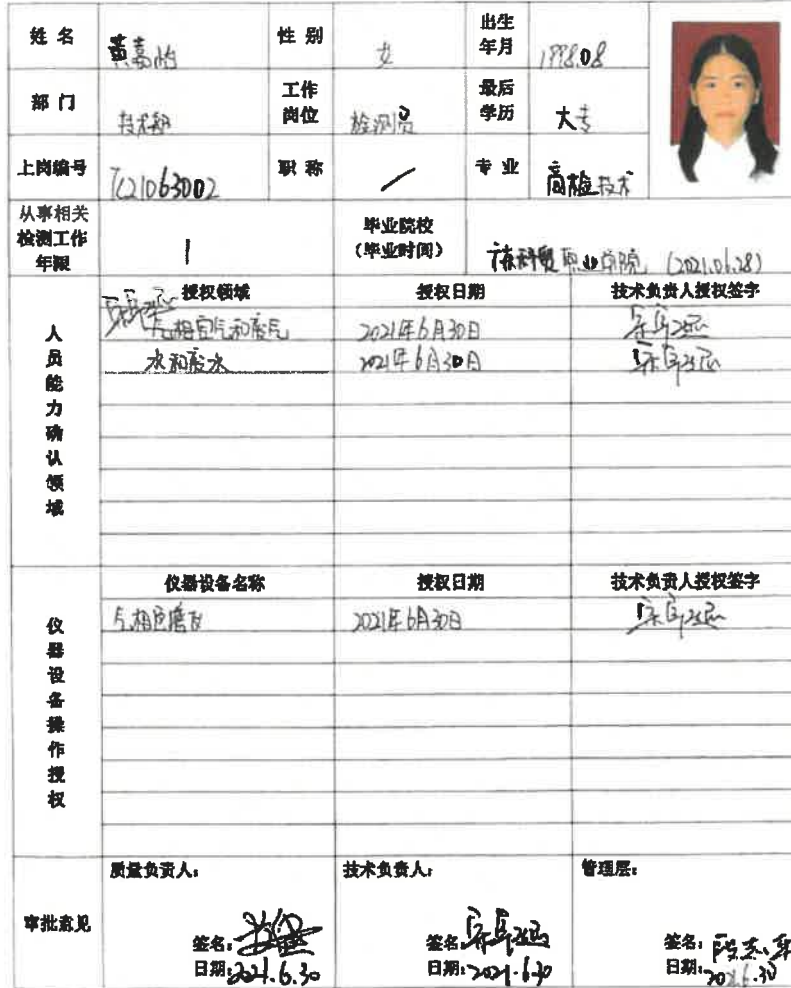 姓名 黄嘉怡 性别 女 出生年月 1998.08
部门 技术部 工作岗位 检测员 最后学历 大专
上岗编号 TC21063002 职称 / 专业 商检技术
从事相关检测工作年限 1 毕业院校（毕业时间） 科贸职业学院 (2021.06.28)
人员能力确认领域
授权领域 授权日期 技术负责人授权签字
空气和废气 2021年6月30日
水和废水 2021年6月30日
仪器设备操作授权
仪器设备名称 授权日期 技术负责人授权签字
气相色谱仪 2021年6月30日
审批意见
质量负责人： 技术负责人： 管理层：
签名： 签名： 签名：
日期：2021.6.30 日期：2021.6.30 日期：2021.6.30